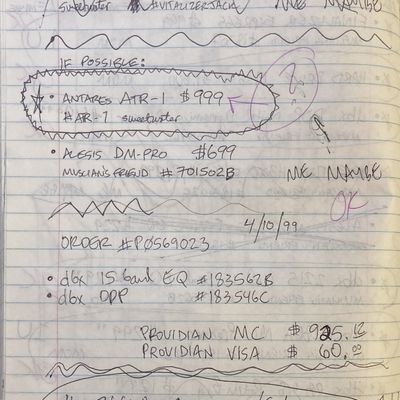 sweetwater #VITALIZERJACK ME MAYBE
IF POSSIBLE:
• ANTARES ATR-1 $999
#AR-1 sweetwater
?
• ALESIS DM-PRO $699
MUSCIAN'S FRIEND #701502B ME MAYBE
OK
4/10/99
ORDER #P0569023
• dbx 15 band EQ #183562B
• dbx DDP #183546C
PROVIDIAN MC $ 925.12
PROVIDIAN VISA $ 60.00